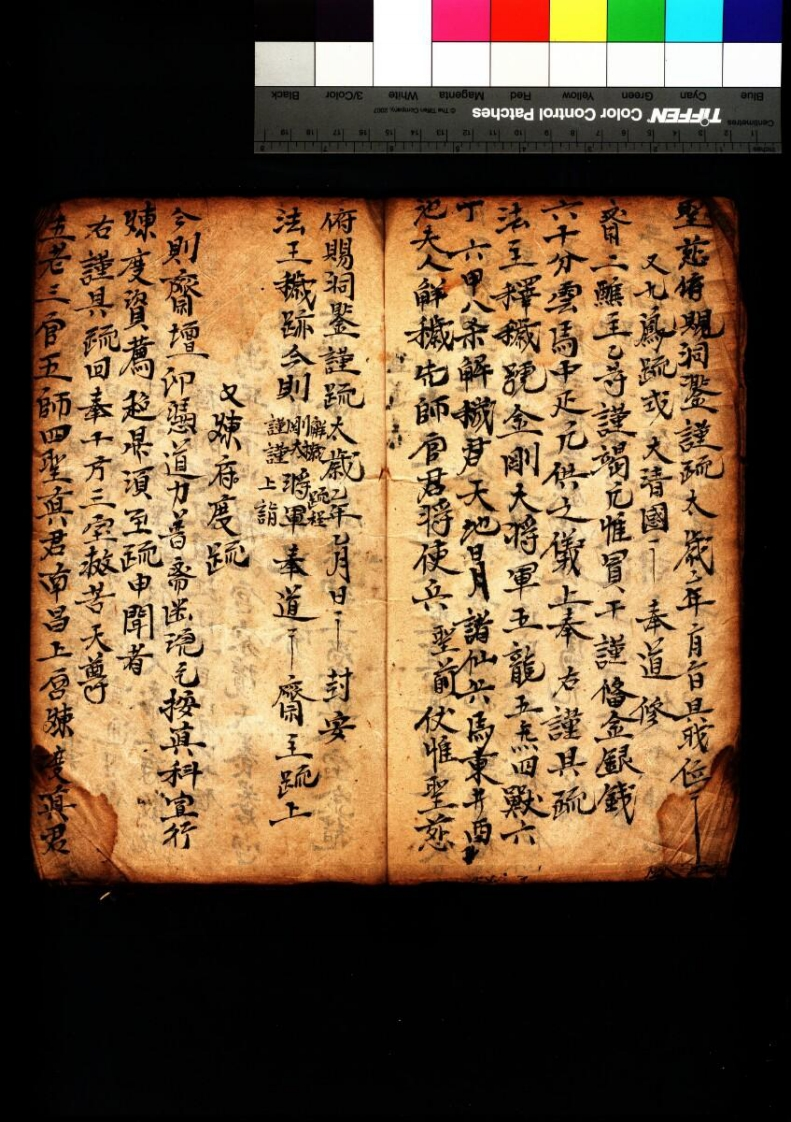 聖慈俯賜洞鑒謹疏太歲 年 月 日具戝位
又九鳳疏或 大清國 奉道修
齋二醮主乙等謹竭 惟冐干謹俻金銀錢
六十分雲馬中疋元供之儀上奉 右謹具疏
法主釋穢 金剛大將軍五龍五 四獸六
丁六甲八 解穢君天地日月諸仙兵馬東井酉
池夫人解穢先師官君將使兵 聖前伏惟聖慈
俯賜洞鑒謹疏太歲乙年乙月日 封安
法王穢跡 解穢 將軍奉道 齋主疏上
謹謹上詣
又煉府度疏
今則齋壇 仰憑道力普齋 按真科宣行
煉度資薦超昇須至疏申聞者
右謹具疏回奉十方三宝救苦天尊
五老三官五師四聖真君南昌上宮煉度真君
TIFFEN Color Control Patches
© The Tiffen Company, 2007
Blue Cyan Green Yellow Red Magenta White 3/Color Black
Centimetres
Inches